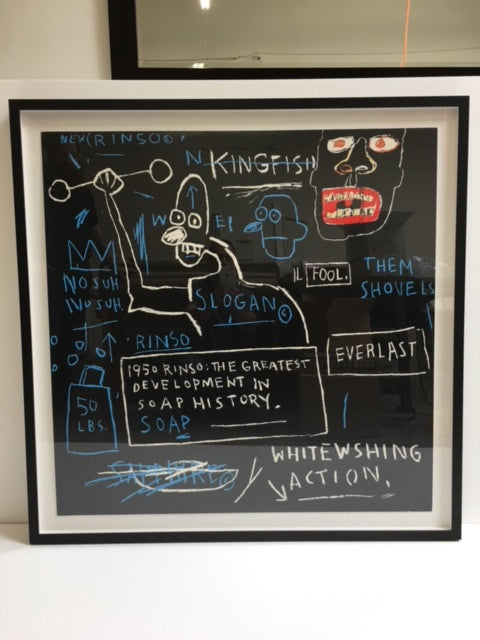 NEW(RINSO©
N KINGFISH
W EI
NO SUH.
NO SUH.
SLOGAN©
11. FOOL.
THEM
SHOVELS
RINSO
EVERLAST
1950 RINSO: THE GREATEST
DEVELOPMENT IN
SOAP HISTORY.
SOAP
50
LBS.
WHITEWSHING
ACTION.